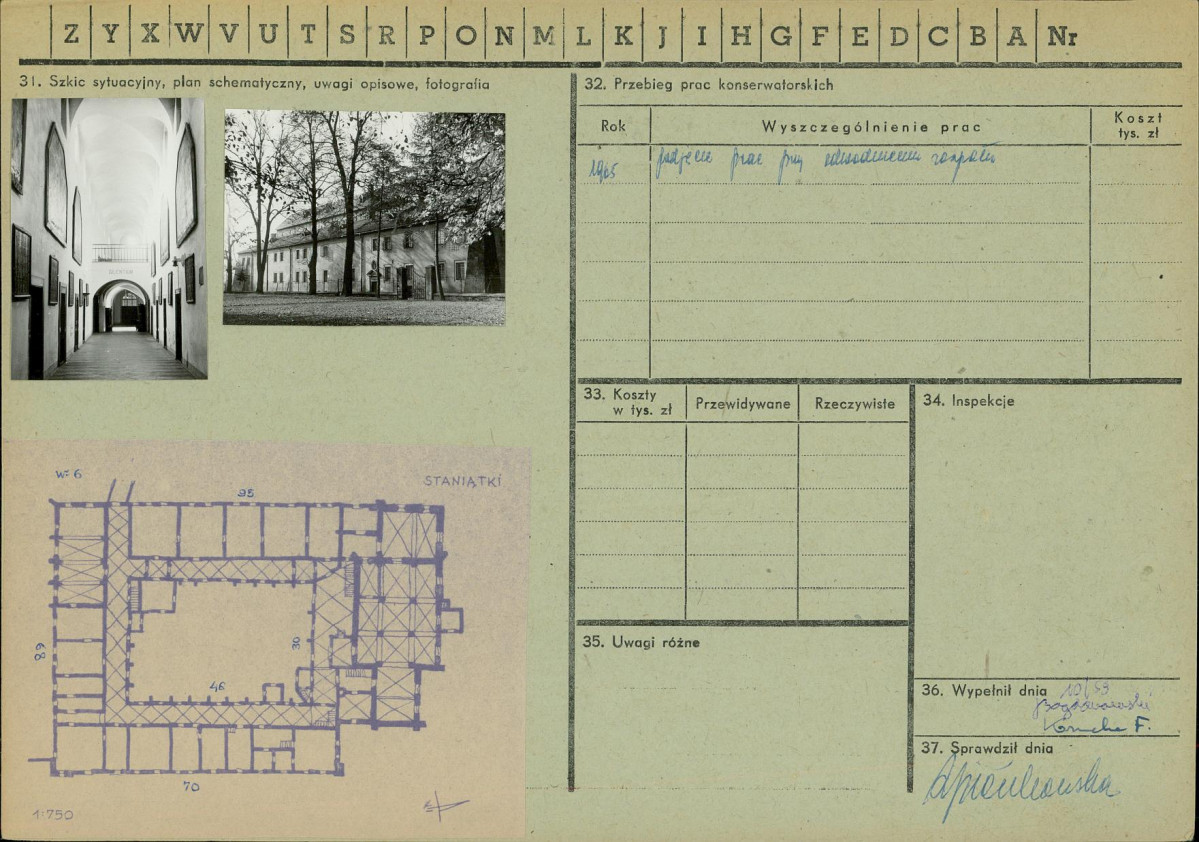 Z Y X W V U T S R P O N M L K J I H G F E D C B A Nr
31. Szkic sytuacyjny, plan schematyczny, uwagi opisowe, fotografia
32. Przebieg prac konserwatorskich
Rok
Wyszczególnienie prac
Koszt
tys. zł
1965
podjęcie prac przy
33. Koszty
w tys. zł
Przewidywane
Rzeczywiste
34. Inspekcje
35. Uwagi różne
36. Wypełnił dnia 10/59
F.
37. Sprawdził dnia
W=6
STANIĄTKI
95
89
30
46
70
1:750